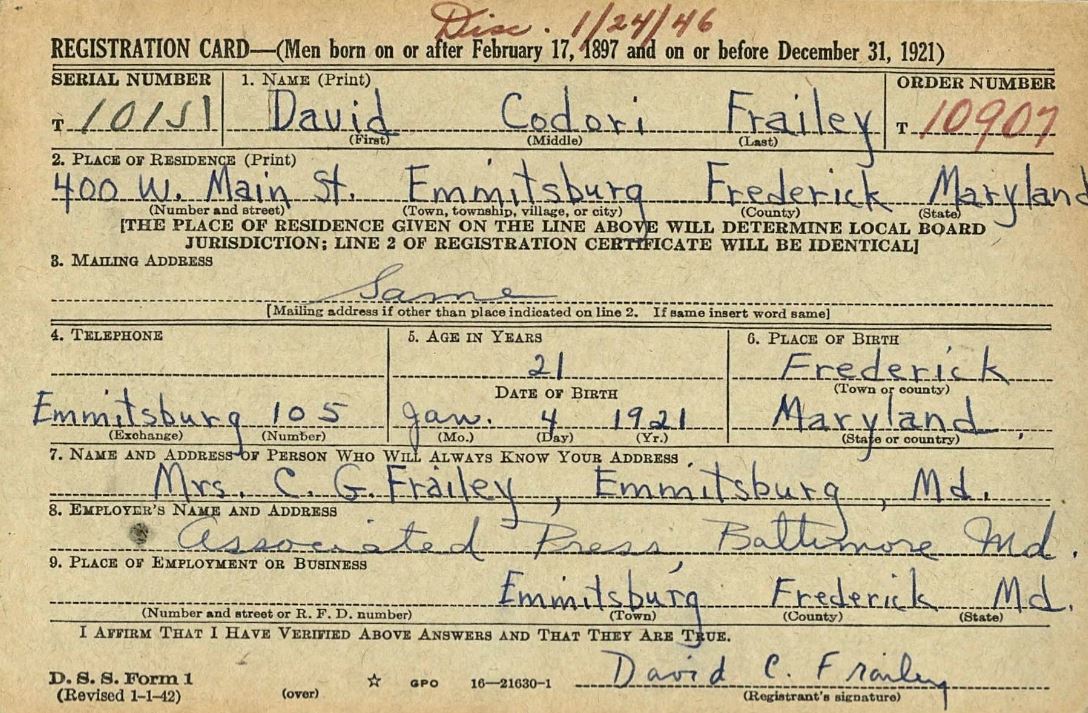 Disc. 1/24/46
REGISTRATION CARD—(Men born on or after February 17, 1897 and on or before December 31, 1921)
SERIAL NUMBER 1. NAME (Print) ORDER NUMBER
T 10151 David Codori Frailey T 10907
(First) (Middle) (Last)
2. PLACE OF RESIDENCE (Print)
400 W. Main St. Emmitsburg Frederick Maryland
(Number and street) (Town, township, village, or city) (County) (State)
[THE PLACE OF RESIDENCE GIVEN ON THE LINE ABOVE WILL DETERMINE LOCAL BOARD
JURISDICTION; LINE 2 OF REGISTRATION CERTIFICATE WILL BE IDENTICAL]
3. MAILING ADDRESS
Same
[Mailing address if other than place indicated on line 2. If same insert word same]
4. TELEPHONE 5. AGE IN YEARS 6. PLACE OF BIRTH
21 Frederick
DATE OF BIRTH (Town or county)
Emmitsburg 105 Jan. 4 1921 Maryland
(Exchange) (Number) (Mo.) (Day) (Yr.) (State or country)
7. NAME AND ADDRESS OF PERSON WHO WILL ALWAYS KNOW YOUR ADDRESS
Mrs. C. G. Frailey, Emmitsburg, Md.
8. EMPLOYER'S NAME AND ADDRESS
Associated Press, Baltimore Md.
9. PLACE OF EMPLOYMENT OR BUSINESS
Emmitsburg Frederick Md.
(Number and street or R. F. D. number) (Town) (County) (State)
I AFFIRM THAT I HAVE VERIFIED ABOVE ANSWERS AND THAT THEY ARE TRUE.
David C. Frailey
D. S. S. Form 1
(Revised 1-1-42) (over) ☆ GPO 16—21630-1 (Registrant's signature)